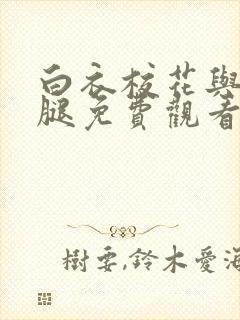 白衣校花與
腿免費觀看
樹要,鈴木愛海